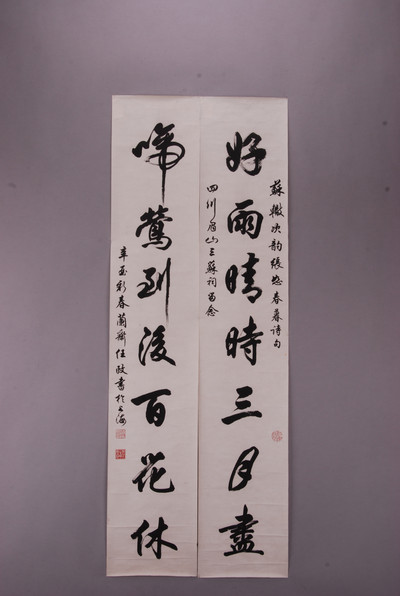 蘇轍次韵張恕春暮诗句
好雨晴時三月盡
四川眉山三蘇祠留念
啼鶯到後百花休
辛酉新春蘭齋任政書於上海